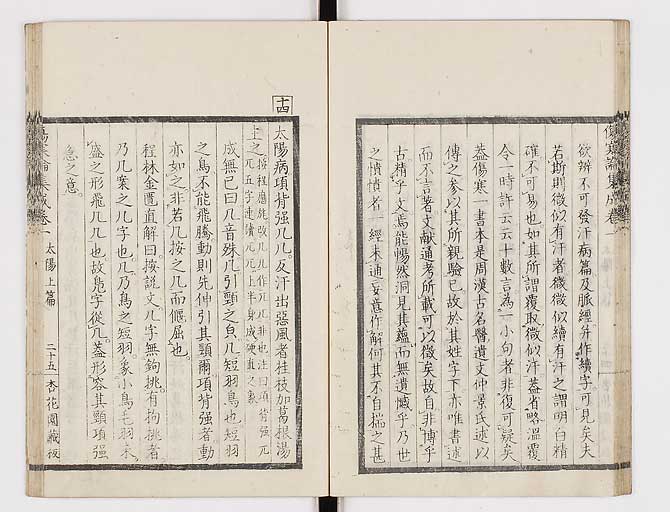 欲辨不可發汗病篇及脈經并作續字可見矣夫
若斯則微似有汗者微微似續有汗之謂明白精
確不可易也如其所謂覆取微似汗蓋省略溫覆
令一時許云云十數言為一小句者非復可疑矣
蓋傷寒一書本是周漢古名醫遺文仲景氏述以
傳之參以其所親驗已故於其姓字下亦唯書述
而不言著文獻通考所載可以徵矣故自非博乎
古精乎文焉能惕然洞見其蘊而無遺憾乎乃世
之憒憒者一經未通妄意作解何其不自揣之甚
十四
太陽病項背强几几反汗出惡風者桂枝加葛根湯
主之
成無己曰几音殊几引頸之皃几短羽鳥也短羽
之鳥不能飛騰動則先伸引其頸爾項背强者動
亦如之非若几按之几而偃屈也
程林金匱直解曰按說文几字無鉤挑有拘挑者
乃几案之几字也几乃鳥之短羽象小鳥毛羽未
盛之形飛几几也故鳬字從几蓋形容其頸項强
急之意
傷寒論集成卷一
太陽上篇
二十五
杏花園藏板